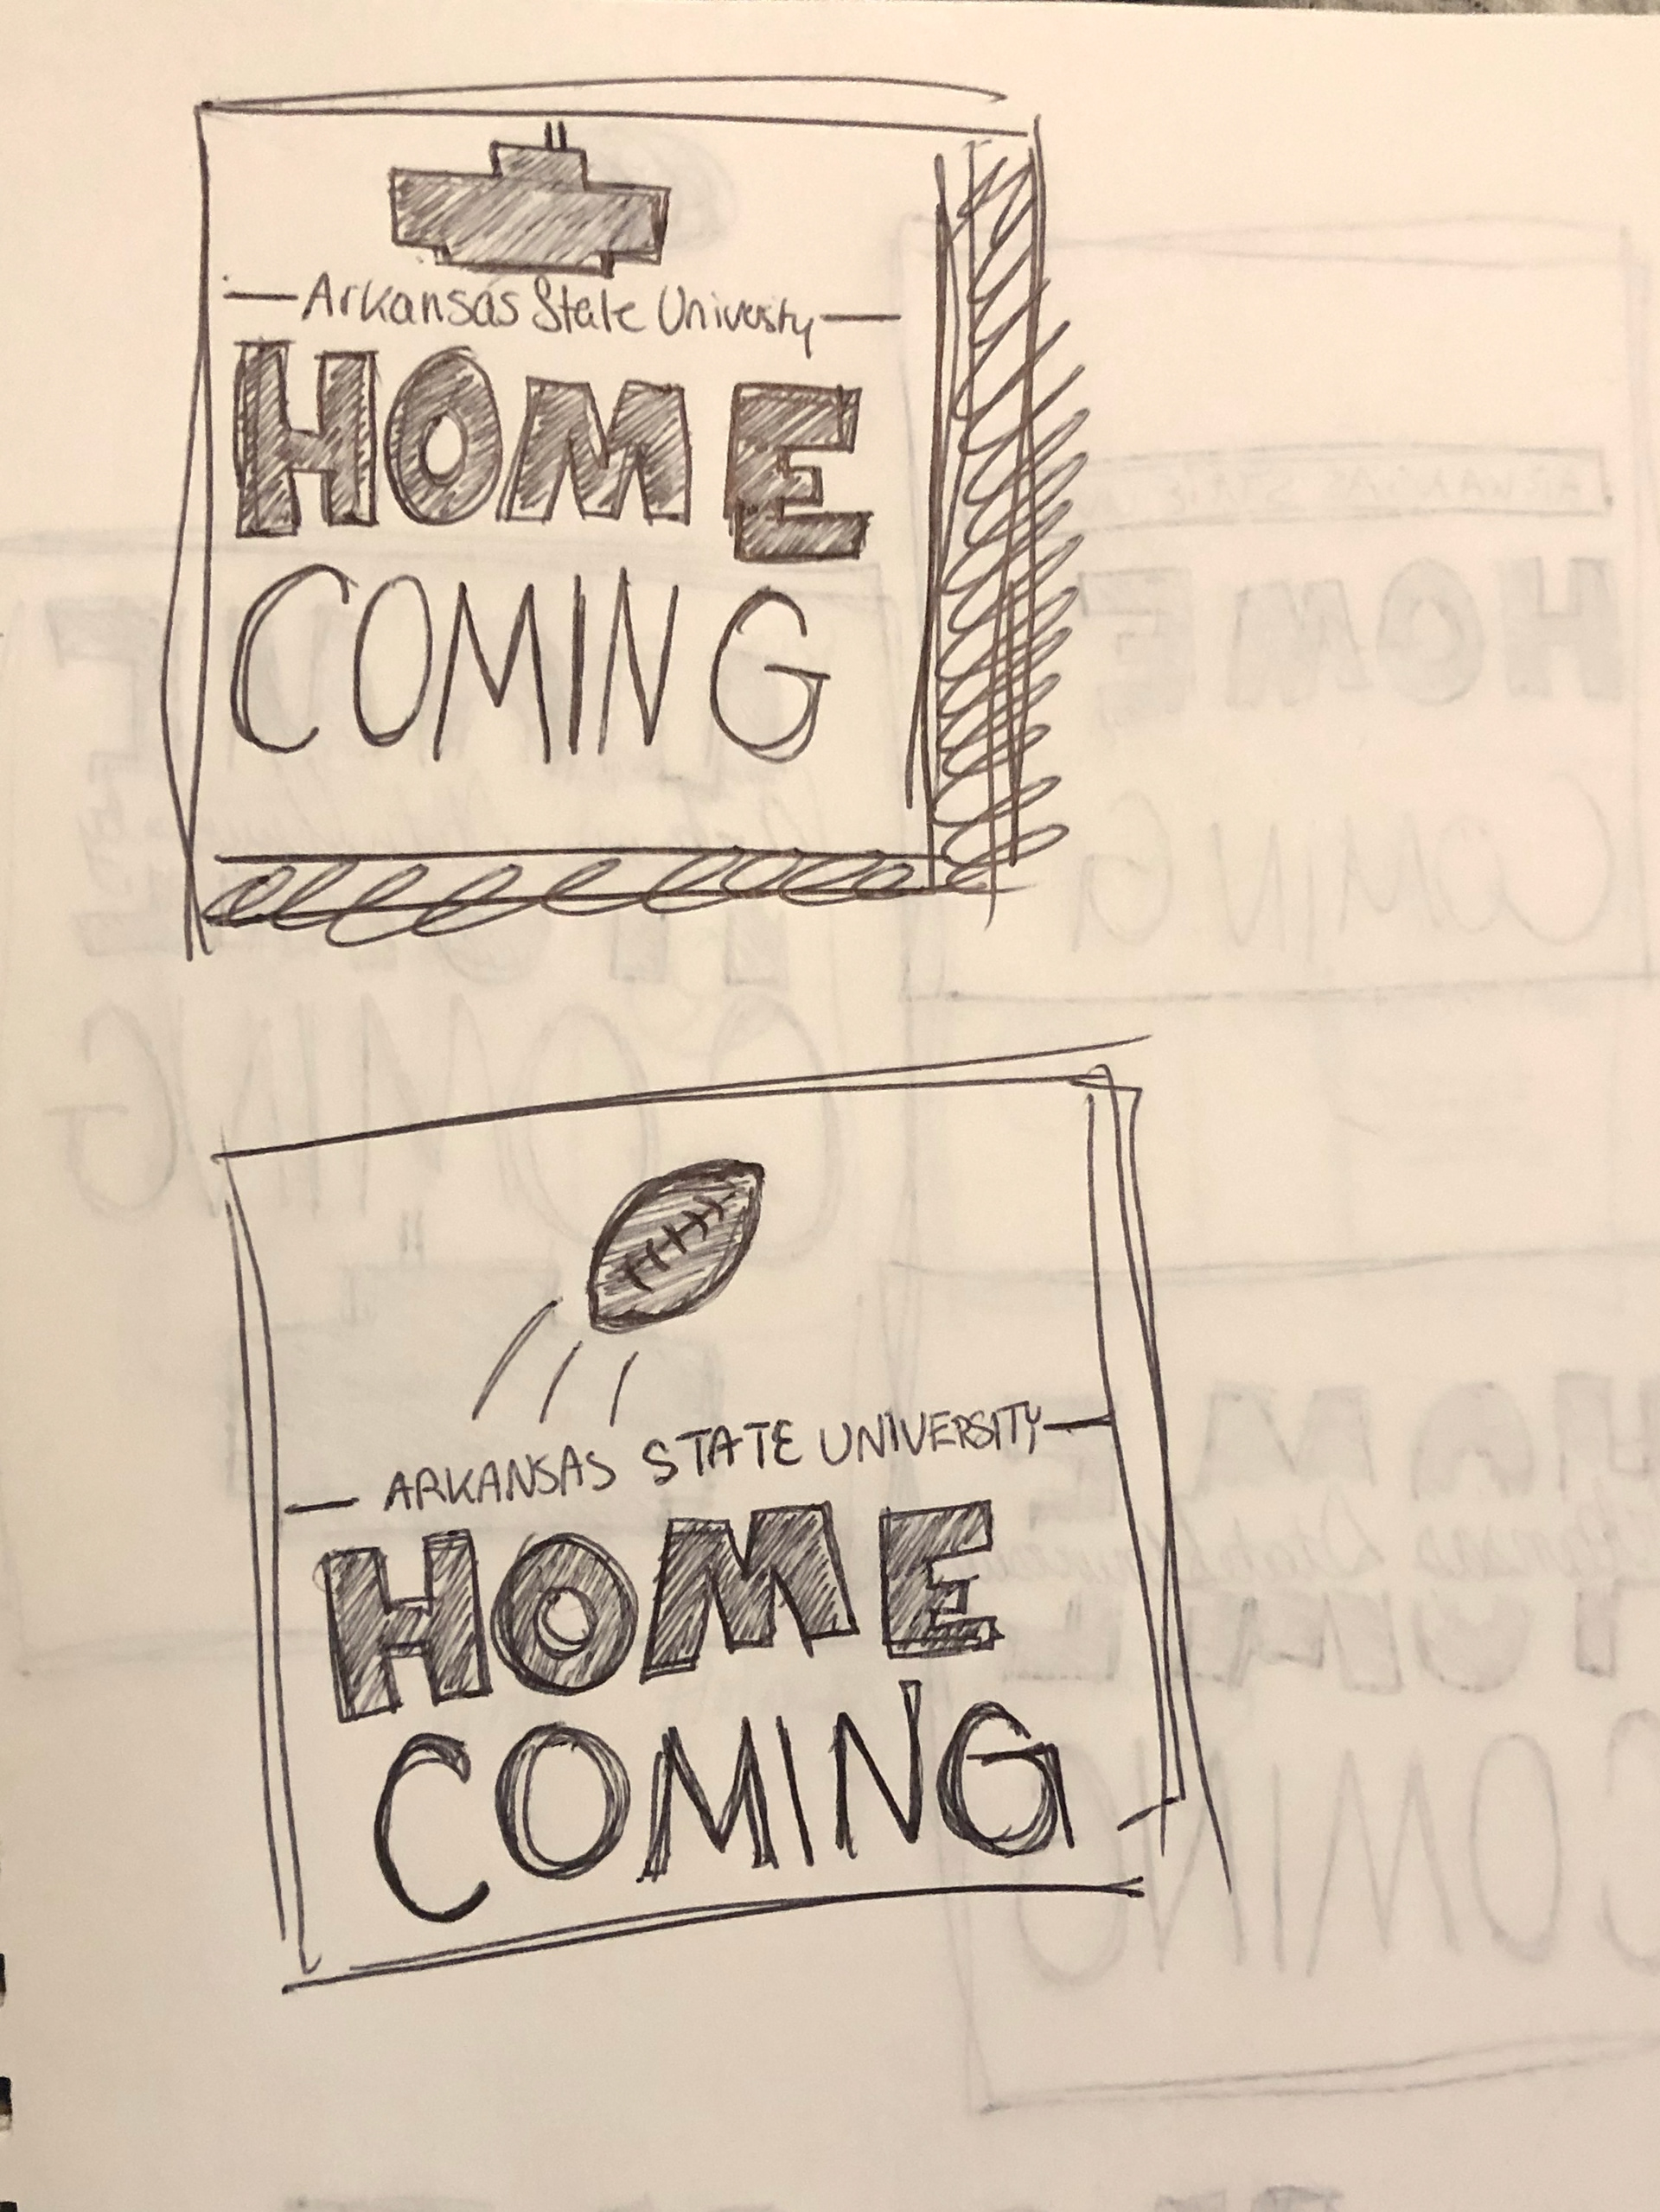 Arkansas State University
HOME
COMING
ARKANSAS STATE UNIVERSITY
HOME
COMING